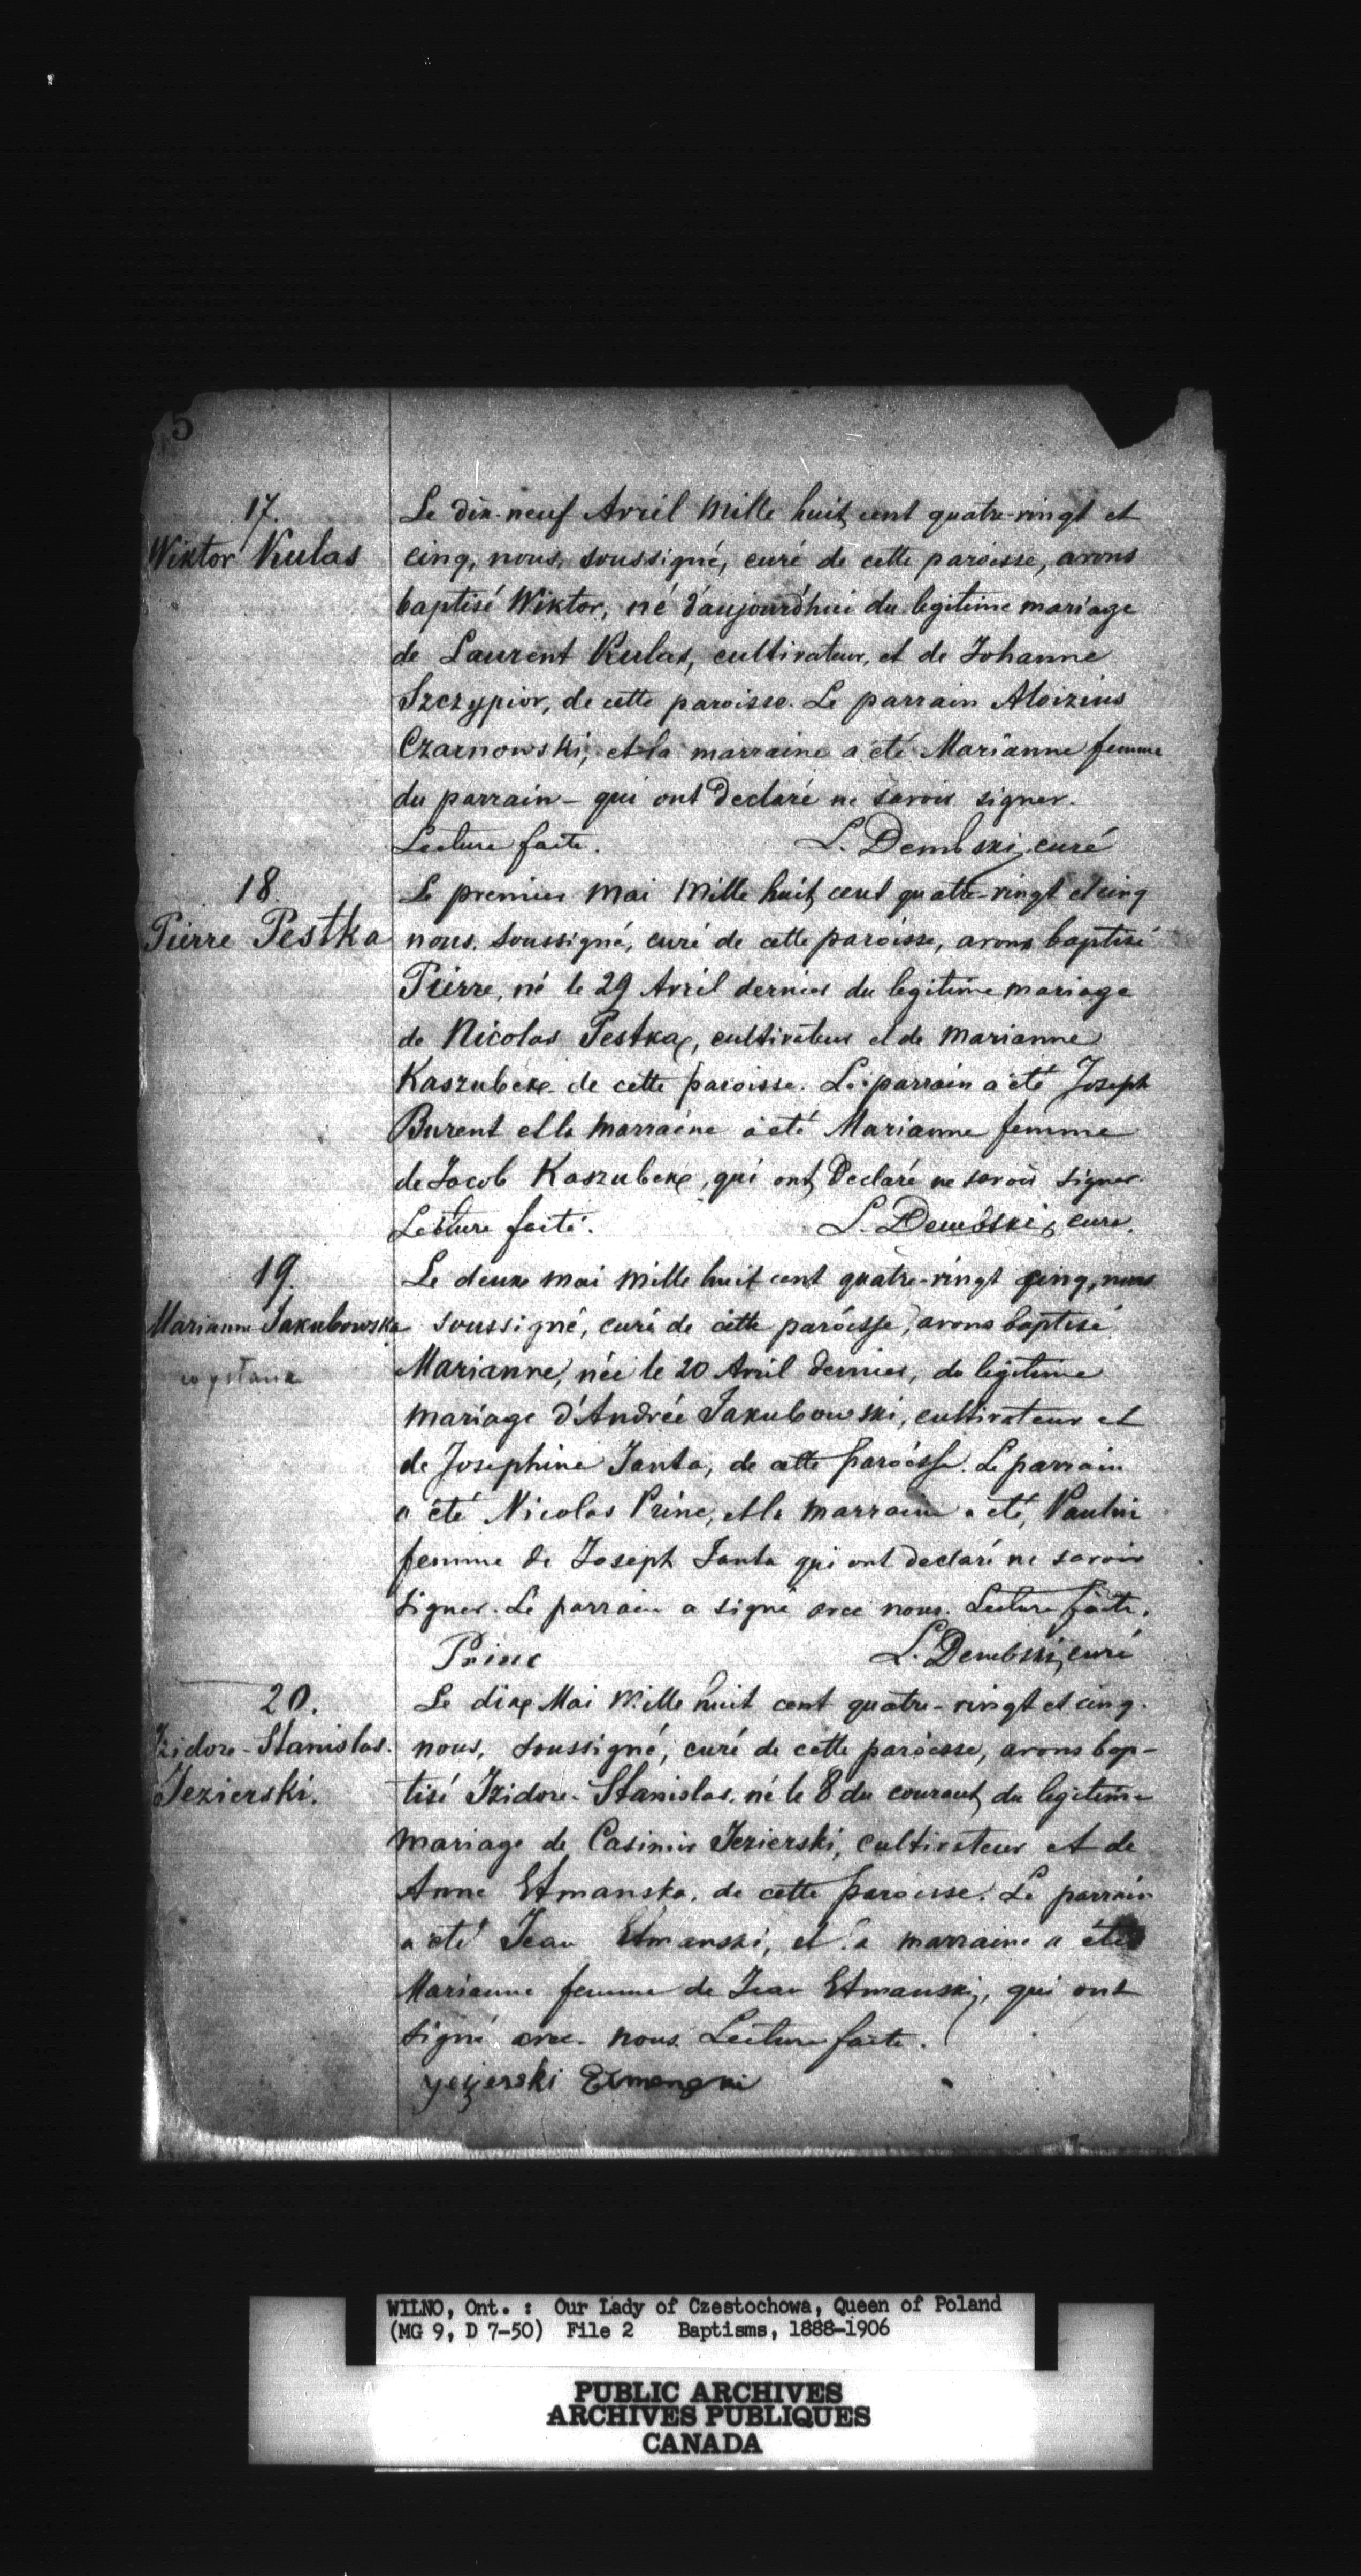 5
17.
Wiktor Kulas
Le dix-neuf Avril Mille huit cent quatre-vingt et
cinq, nous, soussigné, curé de cette paroisse, avons
baptisé Wiktor, né d'aujourd'hui du legitime mariage
de Laurent Kulas, cultivateur, et de Johanne
Szczypior, de cette paroisse. Le parrain Aloizius
Czarnowski, et la marraine a été Marianne femme
du parrain - qui ont declaré ne savoir signer.
Lecture faite. L. Dembski, curé
18.
Pierre Pestka
Le premier Mai Mille huit cent quatre-vingt et cinq
nous, soussigné, curé de cette paroisse, avons baptisé
Pierre, né le 29 Avril dernier du legitime mariage
de Nicolas Pestka, cultivateur et de Marianne
Kaszubek de cette paroisse. Le parrain a été Joseph
Burent et la marraine a été Marianne femme
de Jacob Kaszubek, qui ont declaré ne savoir signer.
Lecture faite. L. Dembski, curé.
19.
Marianne Jakubowska
Le deux mai Mille huit cent quatre-vingt cinq, nous
soussigné, curé de cette paroisse, avons baptisé
Marianne, née le 20 Avril dernier, du legitime
mariage d'Andrée Jakubowski, cultivateur et
de Josephine Janta, de cette paroisse. Le parrain
a été Nicolas Princ, et la marraine a été, Paulin
femme de Joseph Janta qui ont declaré ne savoir
signer. Le parrain a signé avec nous. Lecture faite.
Princ L. Dembski, curé
20.
Izidore-Stanislas.
Jezierski.
Le dix Mai Mille huit cent quatre-vingt et cinq.
nous, soussigné, curé de cette paroisse, avons bap-
tisé Izidore-Stanislas, né le 8 du courant du legitime
mariage de Casimir Jezierski, cultivateur et de
Anne Etmanska, de cette paroisse. Le parrain
a été Jean Etmanski, et la marraine a été
Marianne femme de Jean Etmanski, qui ont
signé avec nous. Lecture faite.
yezerski Etmanski
WILNO, Ont. : Our Lady of Czestochowa, Queen of Poland
(MG 9, D 7-50) File 2 Baptisms, 1888-1906
PUBLIC ARCHIVES
ARCHIVES PUBLIQUES
CANADA